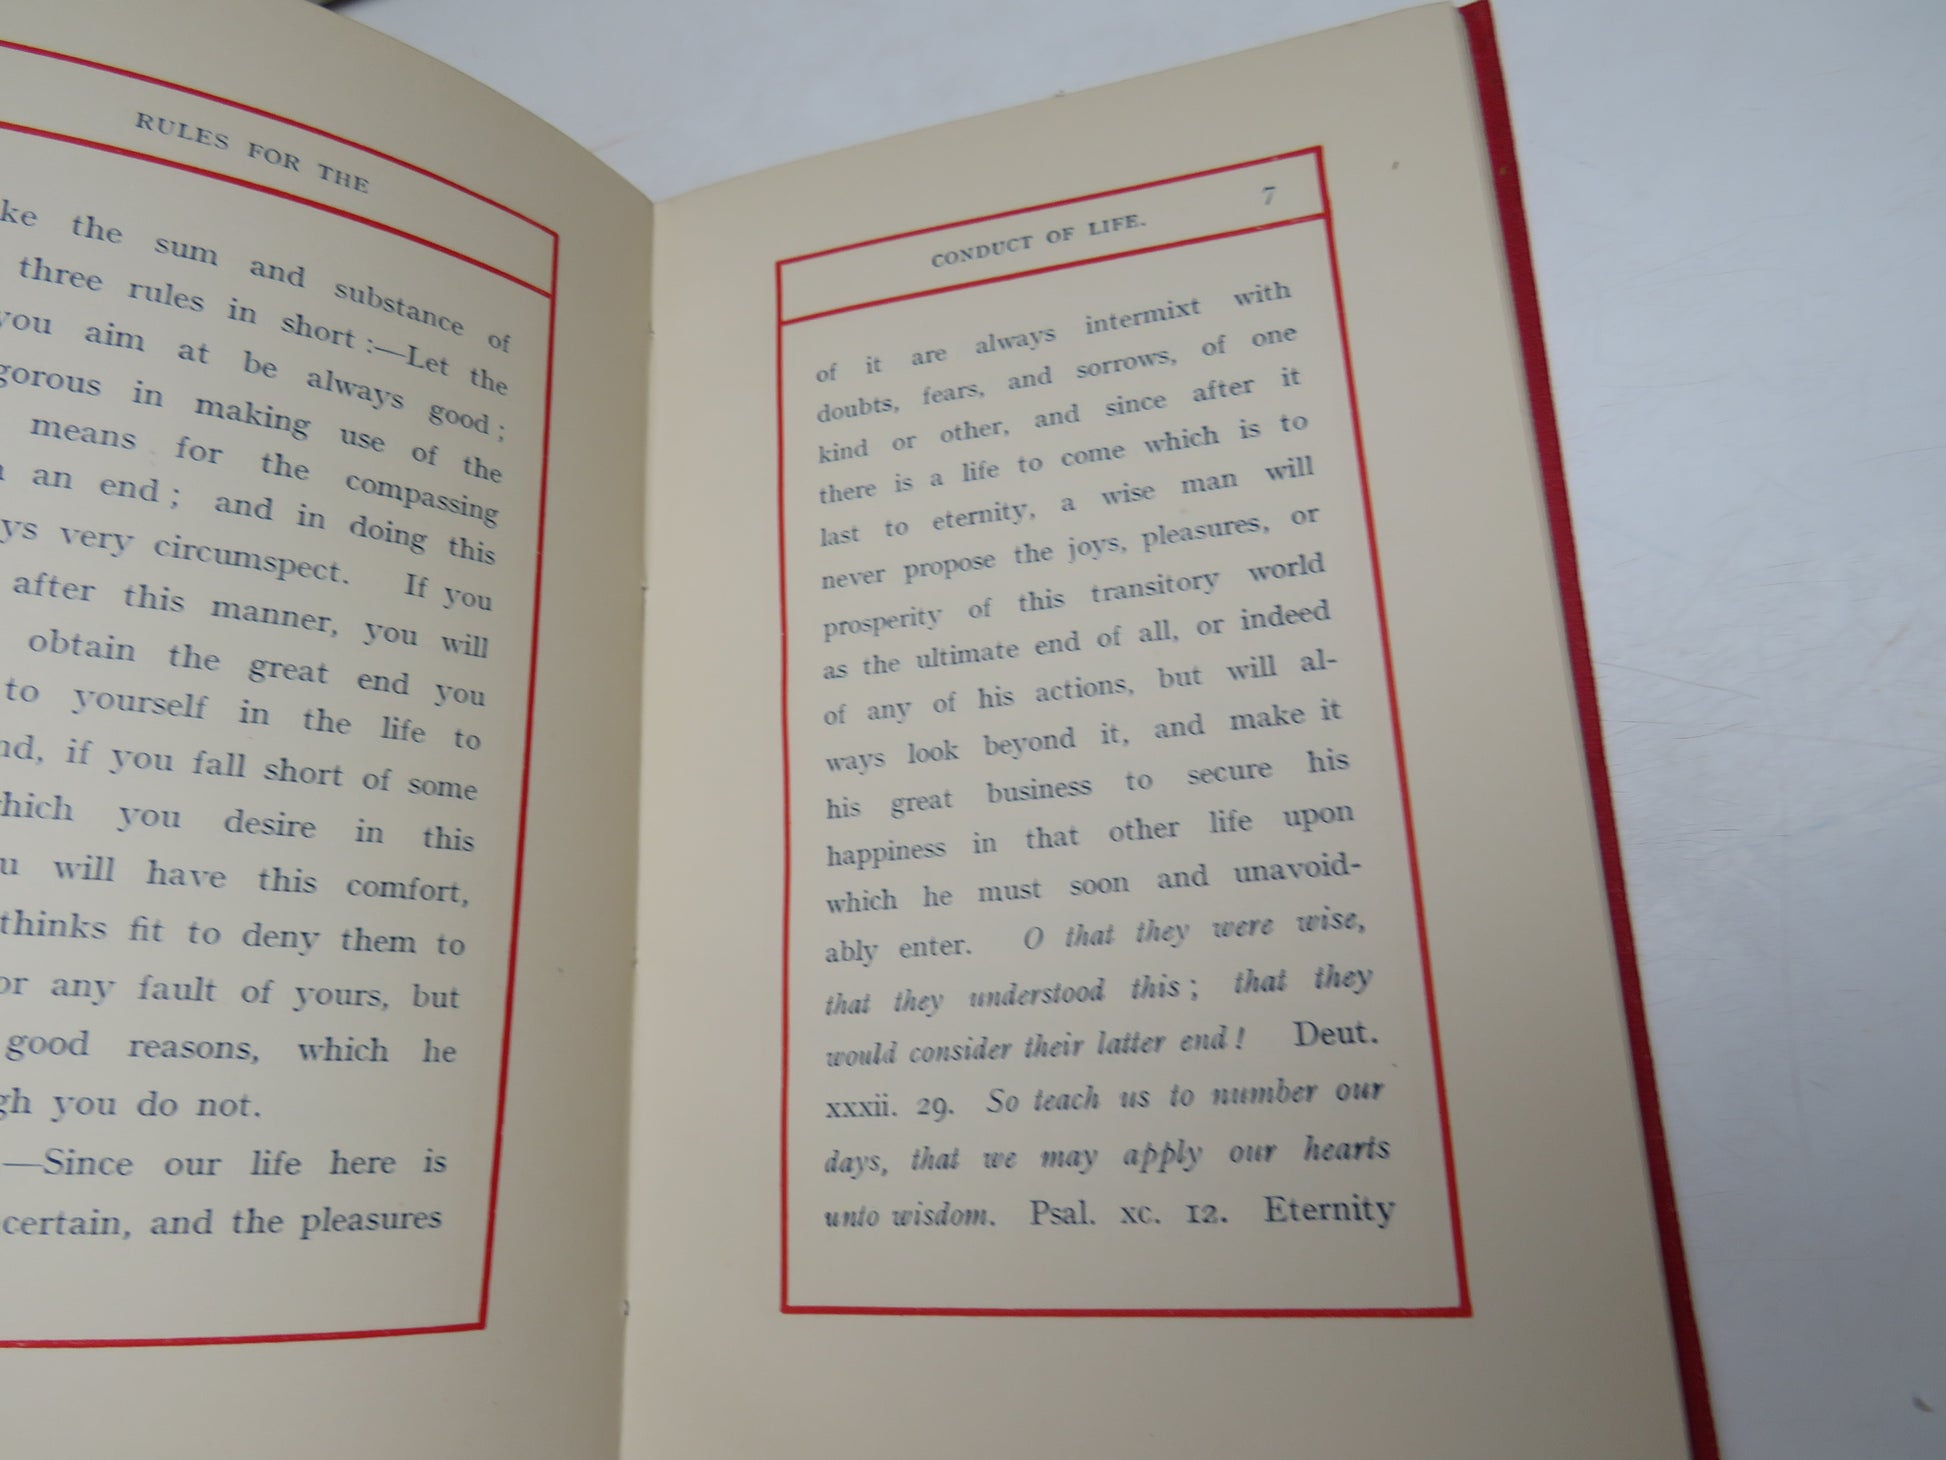 RULES FOR THE
the sum and substance of
three rules in short :—Let the
you aim at be always good ;
in making use of the
means for the compassing
an end ; and in doing this
very circumspect. If you
after this manner, you will
obtain the great end you
to yourself in the life to
if you fall short of some
which you desire in this
will have this comfort,
thinks fit to deny them to
or any fault of yours, but
good reasons, which he
you do not.
—Since our life here is
certain, and the pleasures
CONDUCT OF LIFE. 7
of it are always intermixt with
doubts, fears, and sorrows, of one
kind or other, and since after it
there is a life to come which is to
last to eternity, a wise man will
never propose the joys, pleasures, or
prosperity of this transitory world
as the ultimate end of all, or indeed
of any of his actions, but will al-
ways look beyond it, and make it
his great business to secure his
happiness in that other life upon
which he must soon and unavoid-
ably enter. O that they were wise,
that they understood this ; that they
would consider their latter end ! Deut.
xxxii. 29. So teach us to number our
days, that we may apply our hearts
unto wisdom. Psal. xc. 12. Eternity